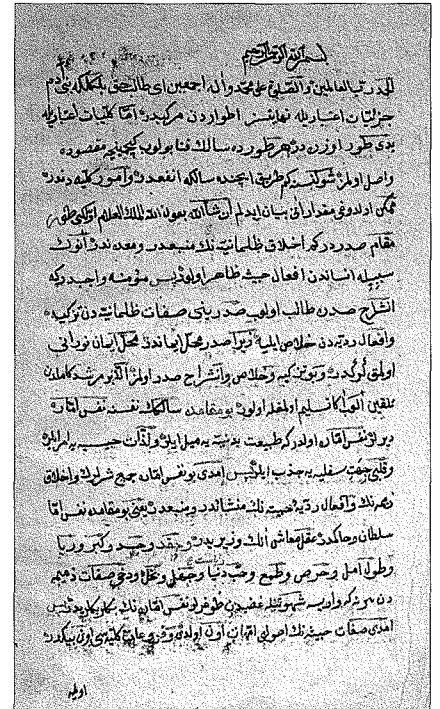 بسم الله الرحمن الرحيم
الحمد لله رب العالمين والصلوة على محمد وآله اجمعين اى طالب حق بلكلكه بنى آدم
جزئيات اعتباريله نهايتسز اطواردن مركبدر اما كليات اعتباريله
يدى طور اوزرندهدر هر طورده سالك فنا بولوب كچمينجه مقصوده
واصل اولمز شولكه طريق ايچنده سالكه انفعدر وامور كليه دندر
ممكن اولدوغى مقدارانى بيان ايدلم ان شاالله بعون الله الملك العلام اولكى طور
مقام صدردركه اخلاق ظلمانيه نك منبعدر ومعدنيدر انوك
سببيله انساندن افعال خبيثه ظاهر اولور پس مؤمنه واجبدركه
انشراح صدره طالب اولوب صدرينى صفات ظلمانيه دن تزكيه
وافعال رديه دن خلاص ايليه زيرا صدر محل ايماندر محل ايمان نورانى
اولمق كركدر وبو تزكيه وخلاص وانشراح صدر اولمز الا بو مرشد كاملدن
تلقين آلوب اكا تسليم اولمغله اولور بو مقامده سالكك نفسنه نفس اماره
ديرلر نفس اماره اولدركه طبيعت بدنيه يه ميل ايلر ولذات حسيه يه امر ايلر
وقلبى جهت سفليه يه جذب ايلر پس امدى بو نفس اماره جميع شرلرك واخلاق
ذميمه نك وافعال رديه خبيثه نك منشائدر ومنبعدر يعنى بو مقامده نفس اماره
سلطان وحاكمدر عقل معاش انك وزيريدر وحقد وحسد وكبر وريا
وطول امل وحرص وطمع وحب دنيا وجهل وبخل ودخى صفات ذميمه
دن هر نه كه وار ايسه شهوتيله غضبدن طوغرلر نفس اماره نك
امدى صفات خبيثه نك اصولى امهاتى اون اولدى وفروعاتى كليتى اون بيكدر
اولمه